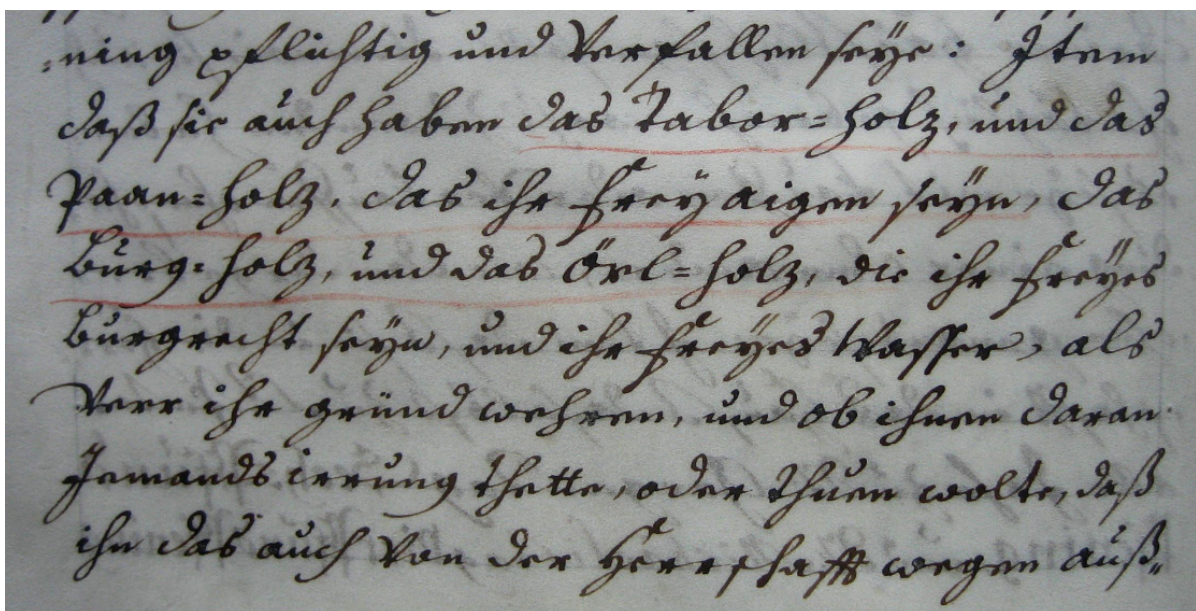 :ning pflichtig und Verfallen seye: Item
daß sie auch haben das Tabor=holz, und das
Paan=holz, das ihr freÿ aigen seÿn, das
Burg=holz, und das Örl=holz, die ihr freÿes
burgrecht seÿn, und ihr freÿes Wasser, als
Verr ihr gründ wehren, und ob ihnen daran
Jemands irrung thette, oder thuen wolte, daß
ihn das auch Von der Herrschafft wegen auß„